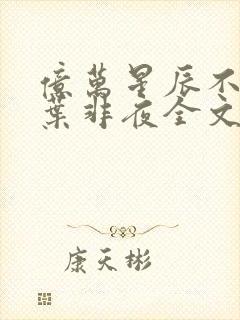 億萬星辰不
葉非夜全文
康天彬